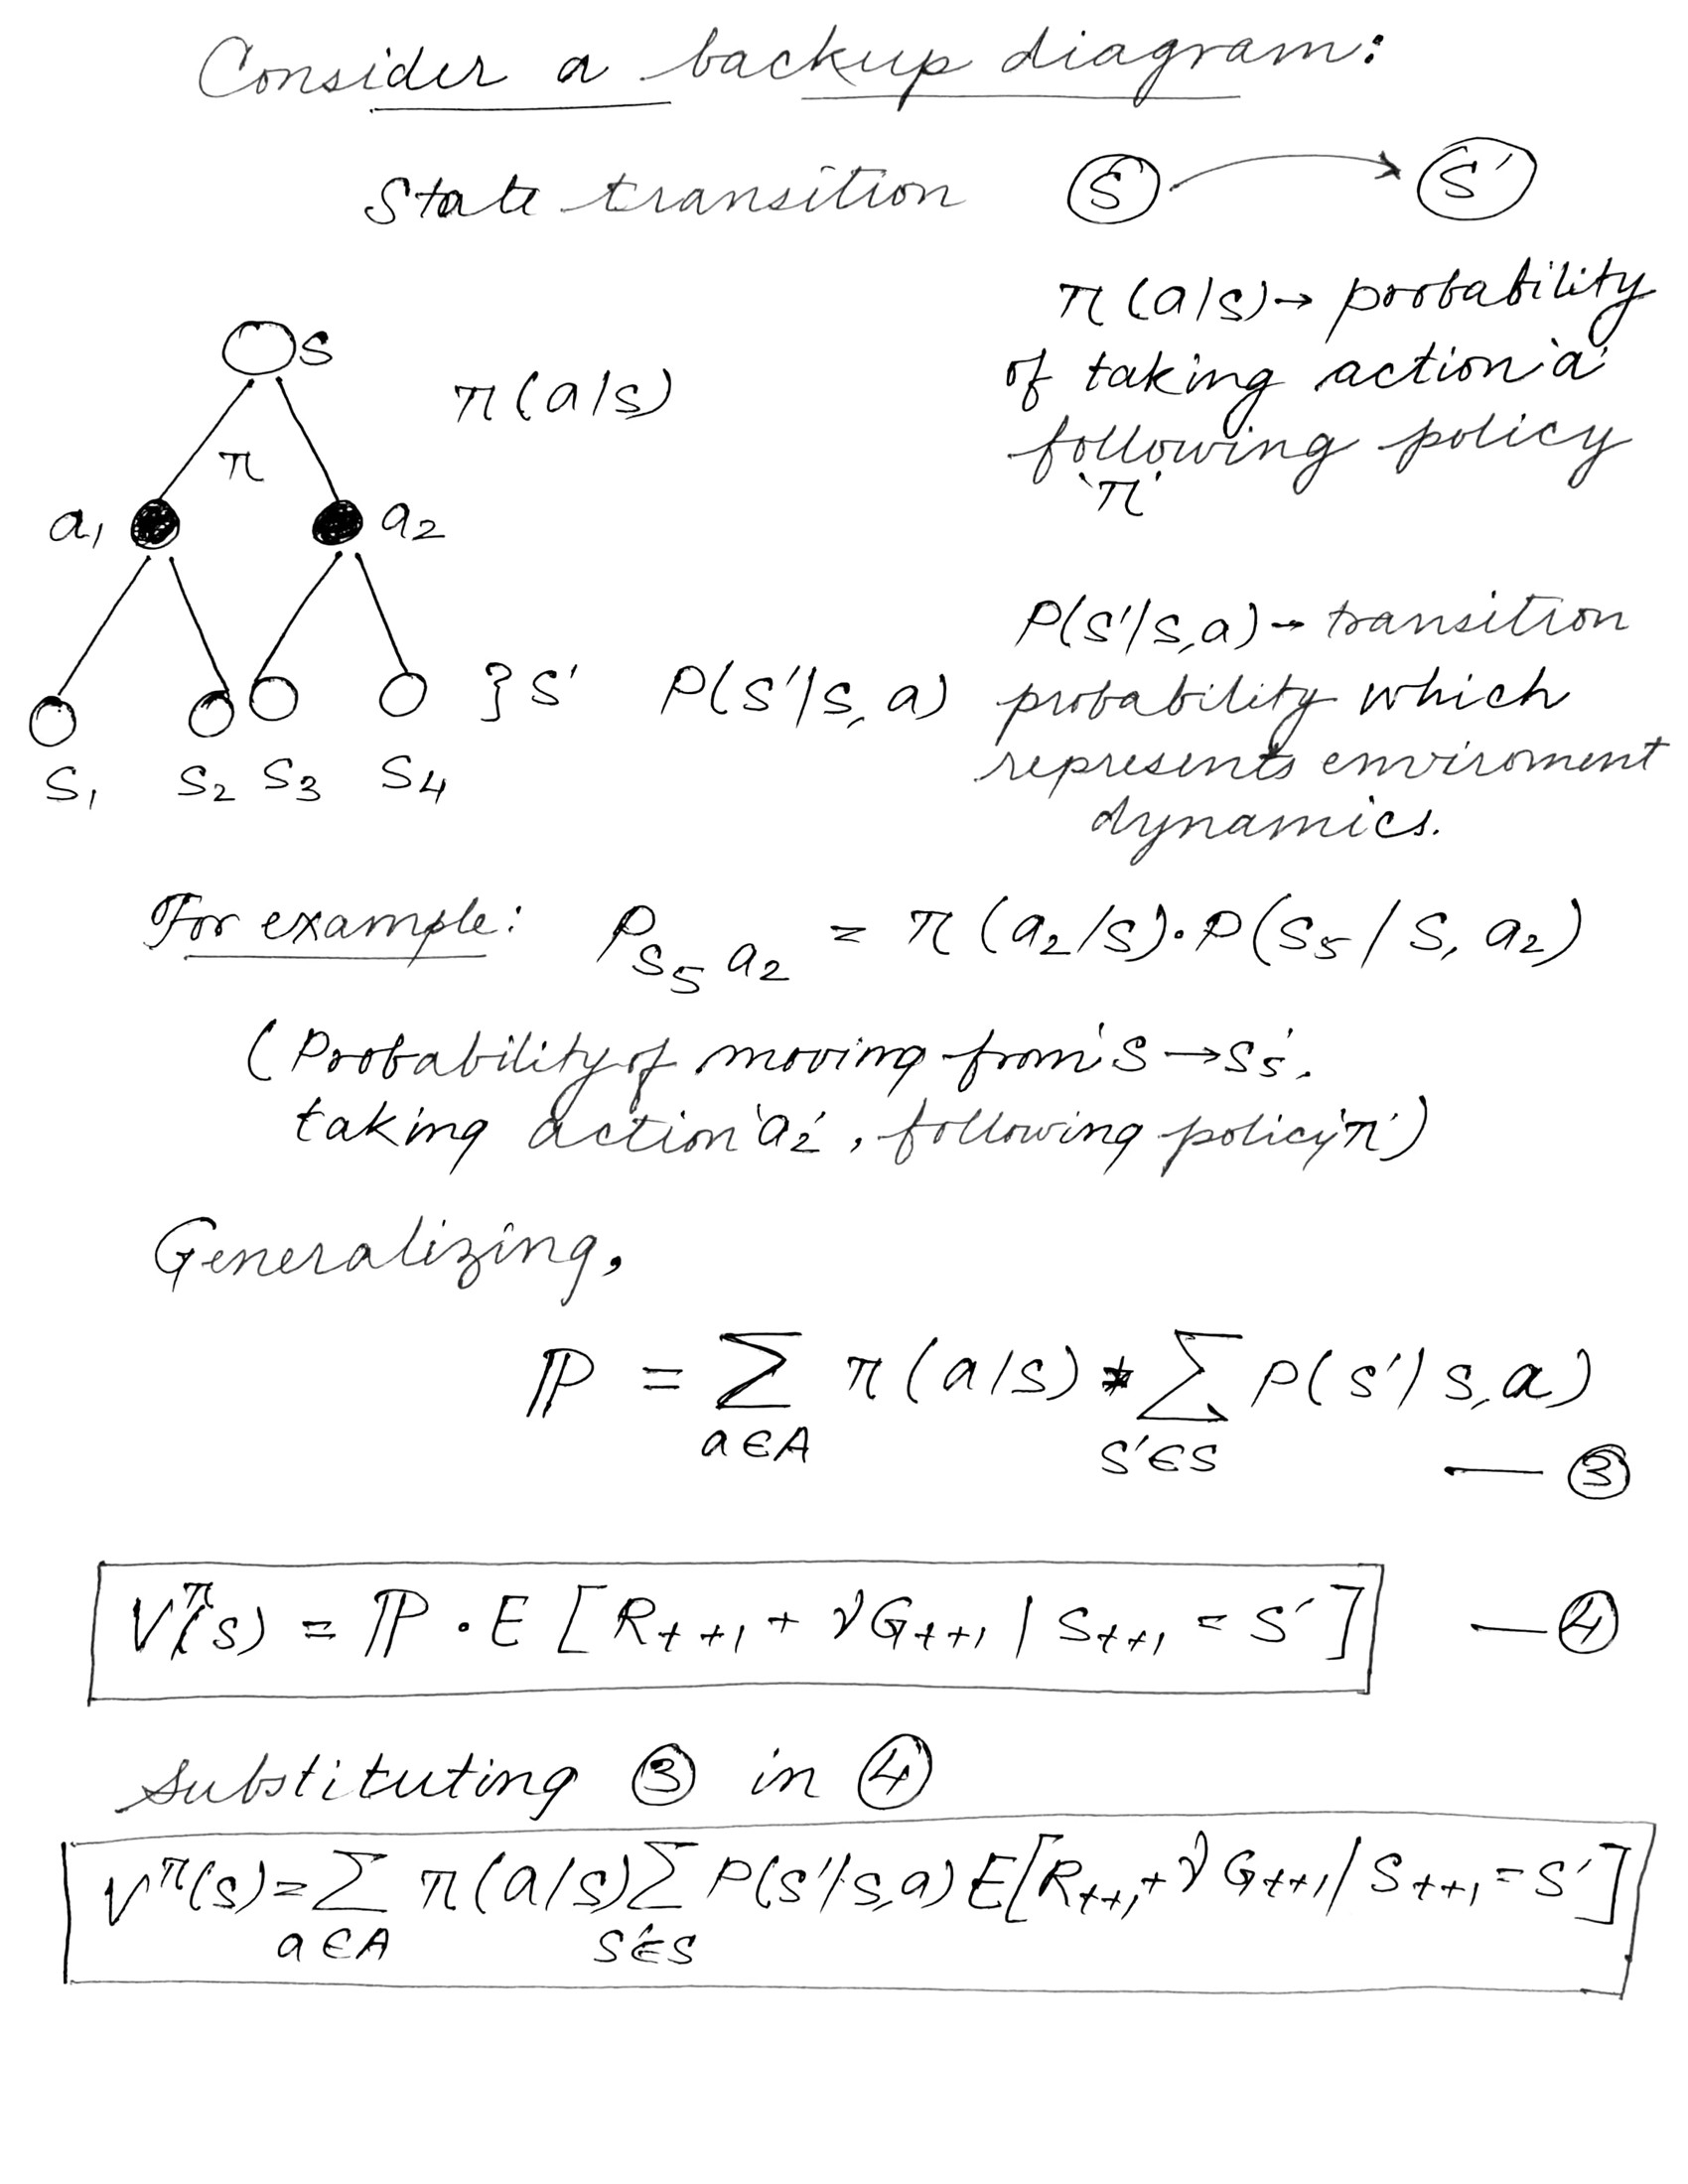 Consider a backup diagram:
State transition S → S'
π(a/s) → probability
of taking action 'a'
following policy
'π'
S
π(a/s)
π
a₁ a₂
P(s'/s,a) → transition
} S' P(s'/s,a) probability which
represents enviroment
dynamics.
S₁ S₂ S₃ S₄
For example: P_{S₅ a₂} = π(a₂/s)·P(S₅/S, a₂)
(Probability of moving from 'S → S₅'.
taking action 'a₂', following policy 'π')
Generalizing,
ℙ = Σ_{a∈A} π(a/s) * Σ_{s'∈S} P(s'/s,a)
— ③
V^π(s) = ℙ · E [R_{t+1} + γG_{t+1} | S_{t+1} = S'] — ④
substituting ③ in ④
V^π(s) = Σ_{a∈A} π(a/s) Σ_{s'∈S} P(s'/s,a) E[R_{t+1} + γG_{t+1} / S_{t+1} = S']